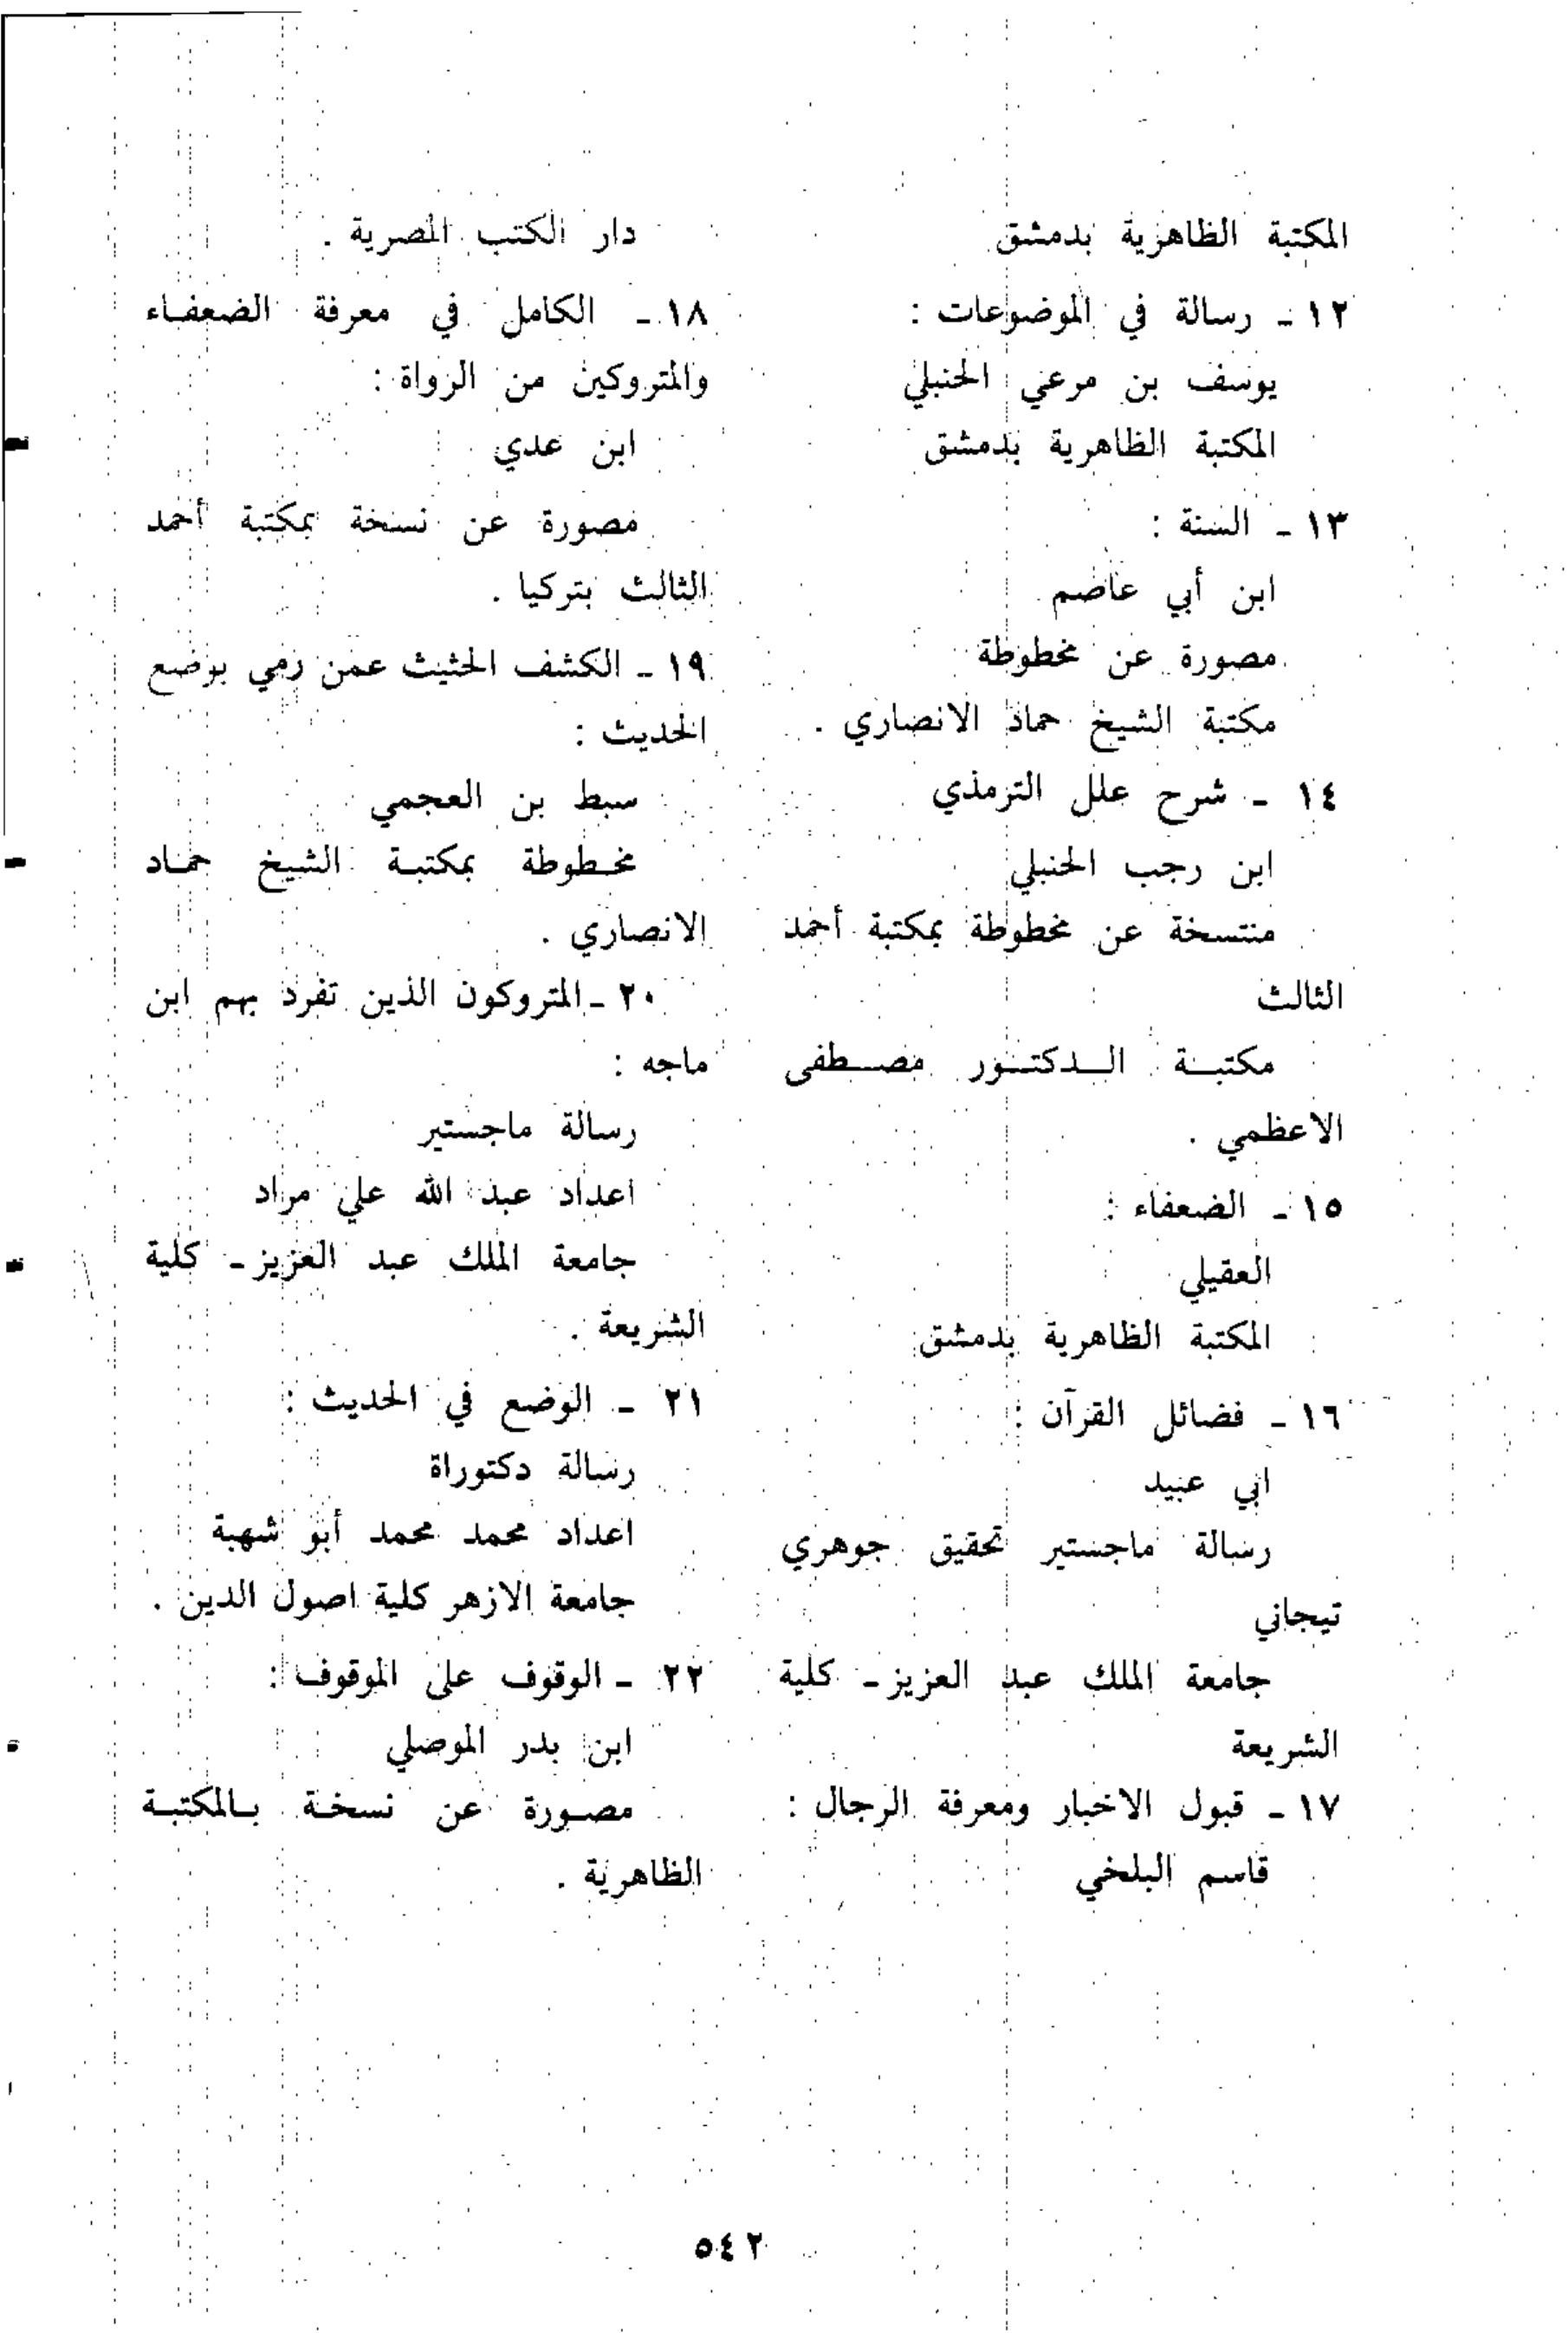 المكتبة الظاهرية بدمشق
١٢ ـ رسالة في الموضوعات :
يوسف بن مرعي الحنبلي
المكتبة الظاهرية بدمشق
١٣ ـ السنة :
ابن أبي عاصم
مصورة عن مخطوطة
مكتبة الشيخ حماد الانصاري .
١٤ ـ شرح علل الترمذي
ابن رجب الحنبلي
منتسخة عن مخطوطة بمكتبة أحمد
الثالث
مكتبـة الـدكتـور مصـطفى
الاعظمي .
١٥ ـ الضعفاء :
العقيلي
المكتبة الظاهرية بدمشق
١٦ ـ فضائل القرآن :
ابي عبيد
رسالة ماجستير تحقيق جوهري
تيجاني
جامعة الملك عبد العزيز ـ كلية
الشريعة
١٧ ـ قبول الاخبار ومعرفة الرجال :
قاسم البلخي
دار الكتب المصرية .
١٨ ـ الكامل في معرفة الضعفـاء
والمتروكين من الرواة :
ابن عدي
مصورة عن نسخة بمكتبة أحمد
الثالث بتركيا .
١٩ ـ الكشف الحثيث عمن رمي بوضع
الحديث :
سبط بن العجمي
مخـطوطة بمكتبـة الشيخ حمـاد
الانصاري .
٢٠ ـ المتروكون الذين تفرد بهم ابن
ماجه :
رسالة ماجستير
اعداد عبد الله علي مراد
جامعة الملك عبد العزيز ـ كلية
الشريعة .
٢١ ـ الوضع في الحديث :
رسالة دكتوراة
اعداد محمد محمد أبو شهبة
جامعة الازهر كلية اصول الدين .
٢٢ ـ الوقوف على الموقوف :
ابن بدر الموصلي
مصـورة عن نسخـة بـالمكتبـة
الظاهرية .
٥٤٢